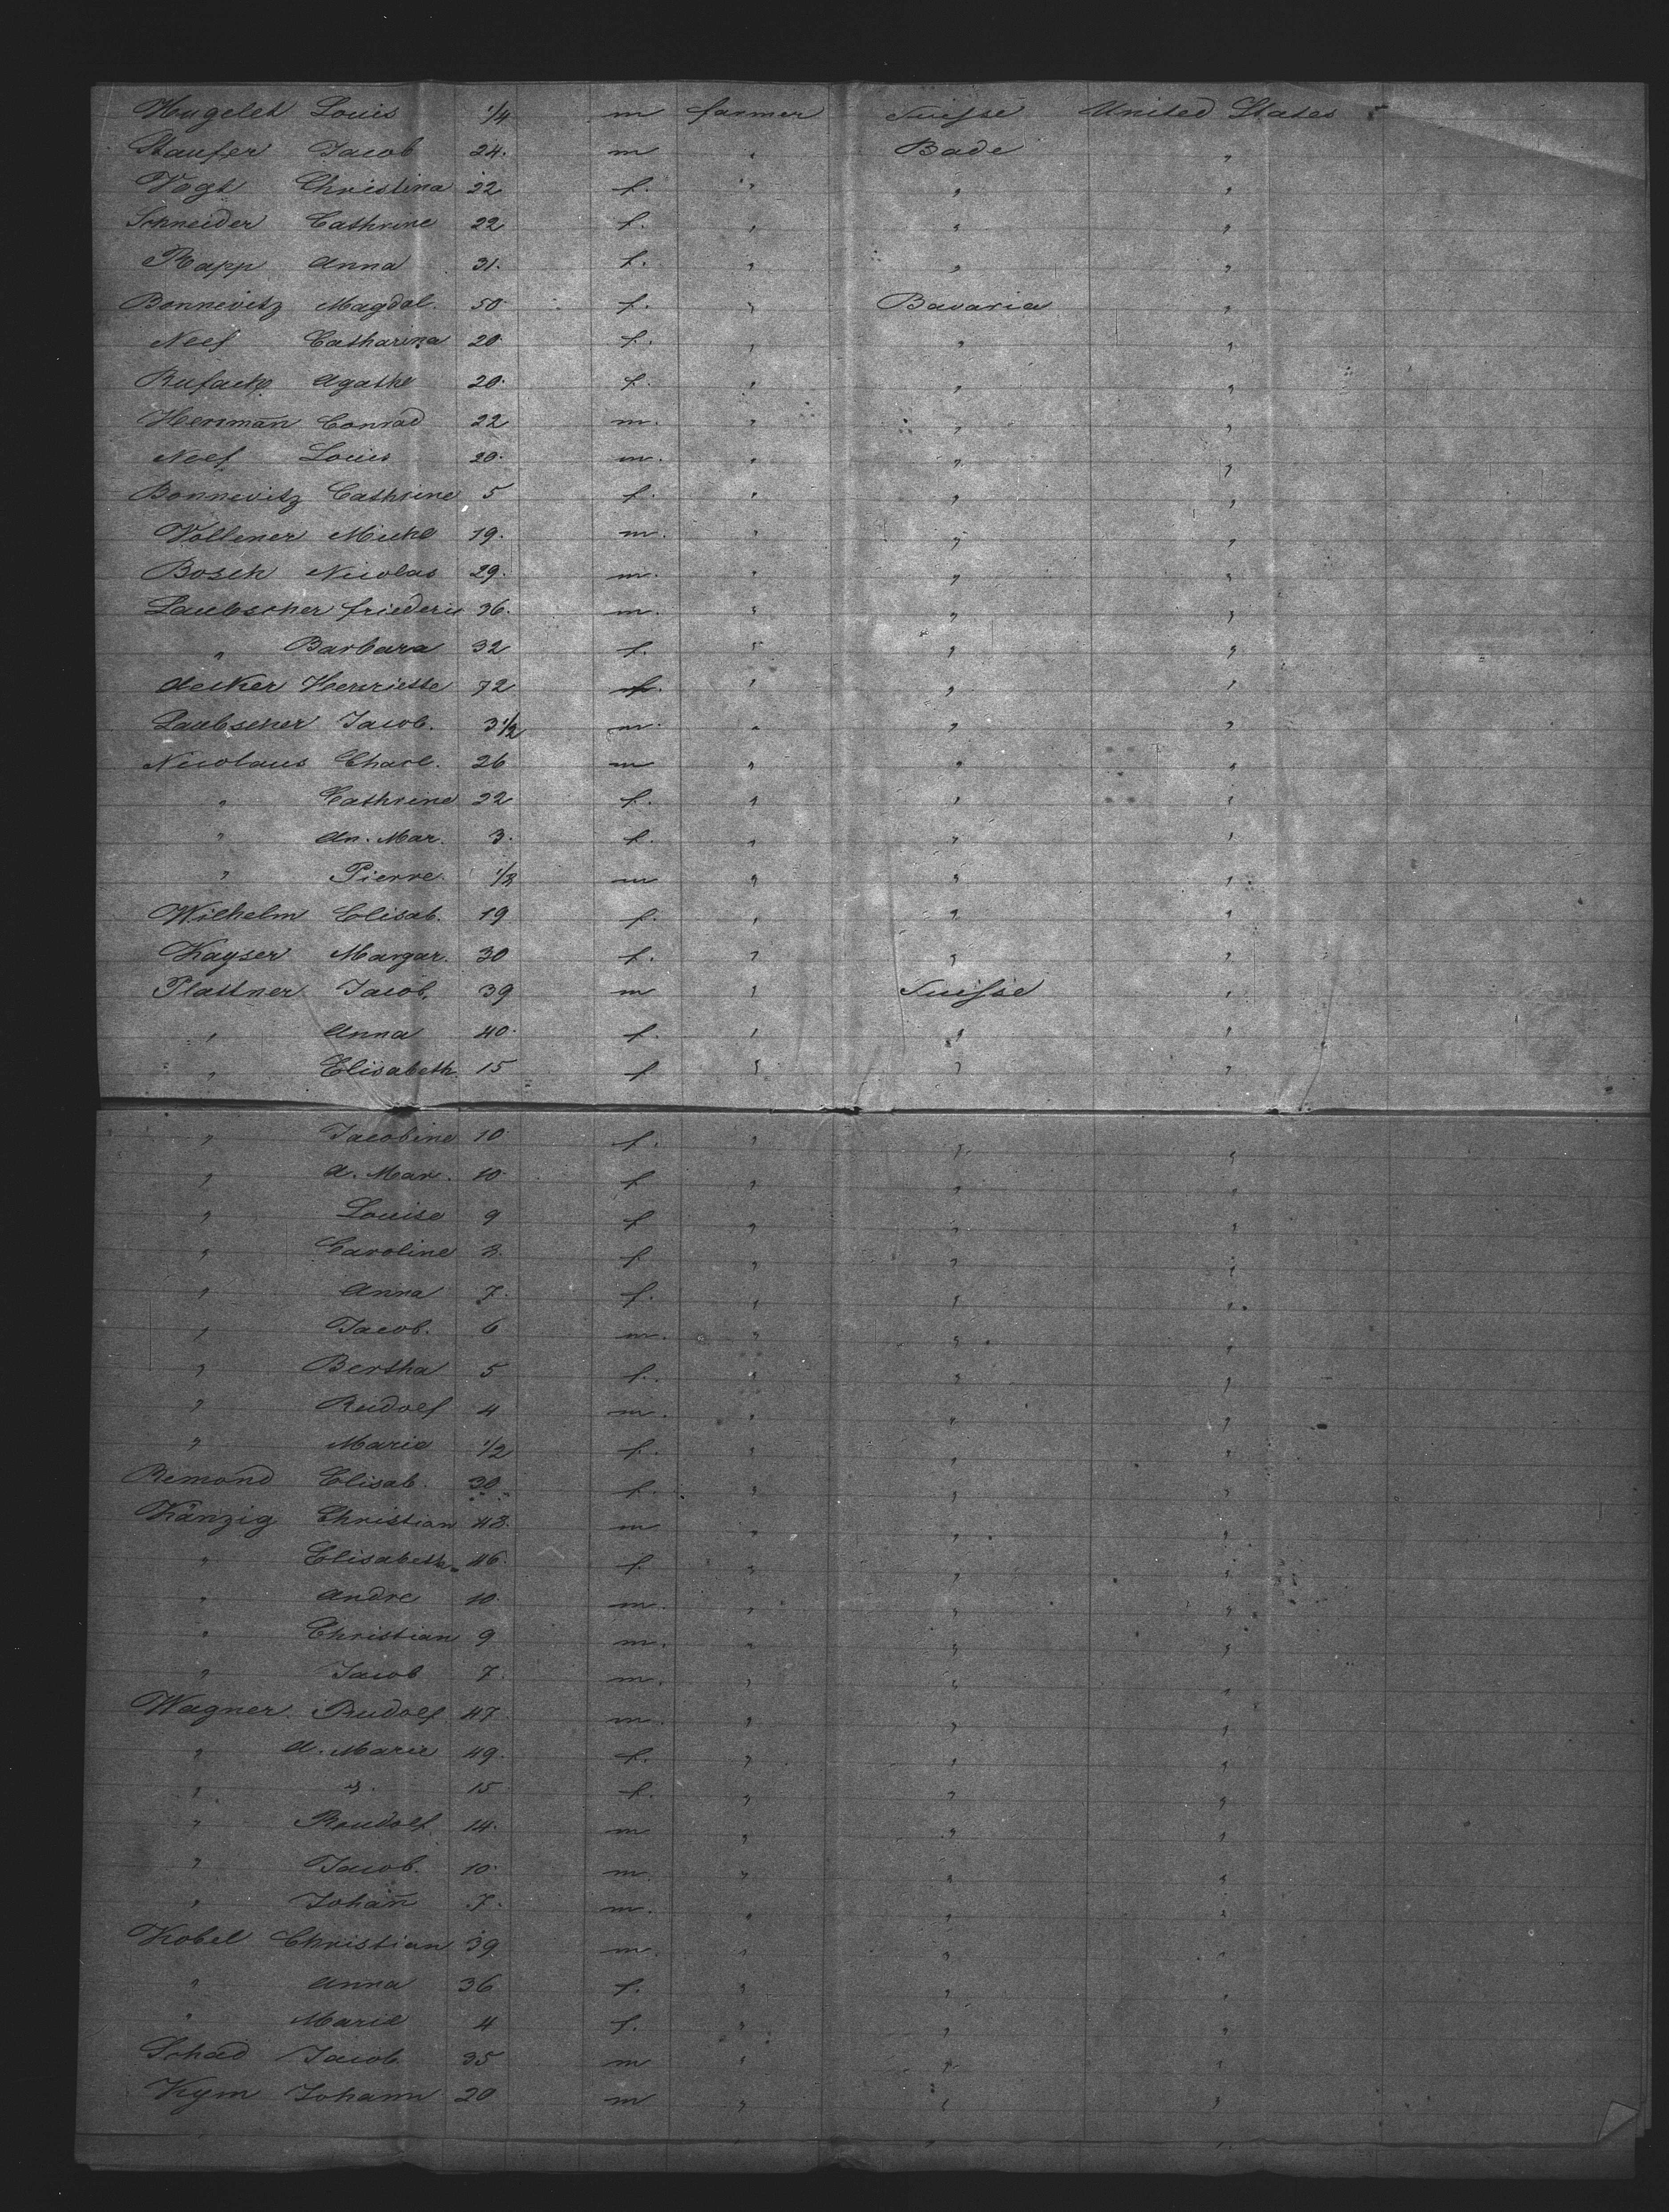 Hugelet Louis 1/4 m farmer Suisse United States
Staufer Jacob 24. m " Bade "
Vogt Christina 22 f. " " "
Schneider Cathrine 22 f. " " "
Rapp Anna 31. f. " " "
Bonnevitz Magdal. 50 f. " Bavaria "
Neef Catharina 20 f. " " "
Agathe 20 f. " " "
Herrman̄ Conrad 22 m. " " "
Neef Louis 20. m. " " "
Bonnevitz Cathrine 5 f. " " "
Voltener Michl 19. m. " " "
Bosch Nicolas 29. m. " " "
Laubscher friederic 36. m. " " "
" Barbara 32 f. " " "
Henriette 72 f. " " "
Laubscher Jacob. 3 1/2 m. " " "
Nicolaus Charl. 26 m " " "
" Cathrine 22 f. " " "
" An. Mar. 3. f. " " "
" Pierre. m " " "
Wilhelm Elisab. 19 f. " " "
Kayser Margar. 30 f. " " "
Plattner Jacob. 39 m " Suisse "
" Anna 40. f. " " "
" Elisabeth. 15 f " " "
" Jacobine 10 f. " " "
" A. Mar. 10 f " " "
" Louise 9 f " " "
" Caroline f " " "
" Anna 7. f. " " "
" Jacob. 6 m. " " "
" Bertha 5 f. " " "
" Rudolf 4 m. " " "
" Maria 1/2 f. " " "
Remond Elisab. 30 f. " " "
Känzig Christian 43. m " " "
" Elisabeth 46. f. " " "
" Andre 10. m. " " "
" Christian 9 m. " " "
" Jacob 7. m. " " "
Wagner Rudolf 47 m. " " "
" A. Marie 49. f. " " "
" " 15 f. " " "
" Roudolf 14. m " " "
" Jacob. 10. m. " " "
" Johan̄ 7. m. " " "
Kobel Christian 39 m. " " "
" Anna 36 f. " " "
" Marie 4 f. " " "
Schad Jacob 35 m " " "
Kym Johann 20 m " " "